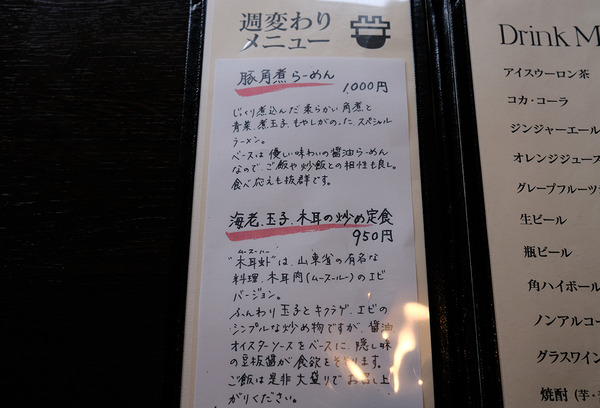 週変わり
メニュー
豚角煮らーめん
1,000円
じっくり煮込んだ柔らかい角煮と
青菜、煮玉子、もやしがのった、スペシャル
ラーメン。
ベースは優しい味わいの醤油らーめん
なので、ご飯や炒飯との相性も良し。
食べ応えも抜群です。
海老、玉子、木耳の炒め定食
950円
ムースーハー
"木耳虾"は、山東省の有名な
料理、木耳肉(ムースールー)のエビ
バージョン。
ふんわり玉子とキクラゲ、エビの
シンプルな炒め物ですが、醤油
オイスターソースをベースに、隠し味
の豆板醤が食欲をそそります。
ご飯は是非大盛りでお召し上
がりください。
Drink M
アイスウーロン茶
コカ・コーラ
ジンジャーエール
オレンジジュース
グレープフルーツ
生ビール
瓶ビール
角ハイボール
ノンアルコー
グラスワイン
焼酎 (芋・